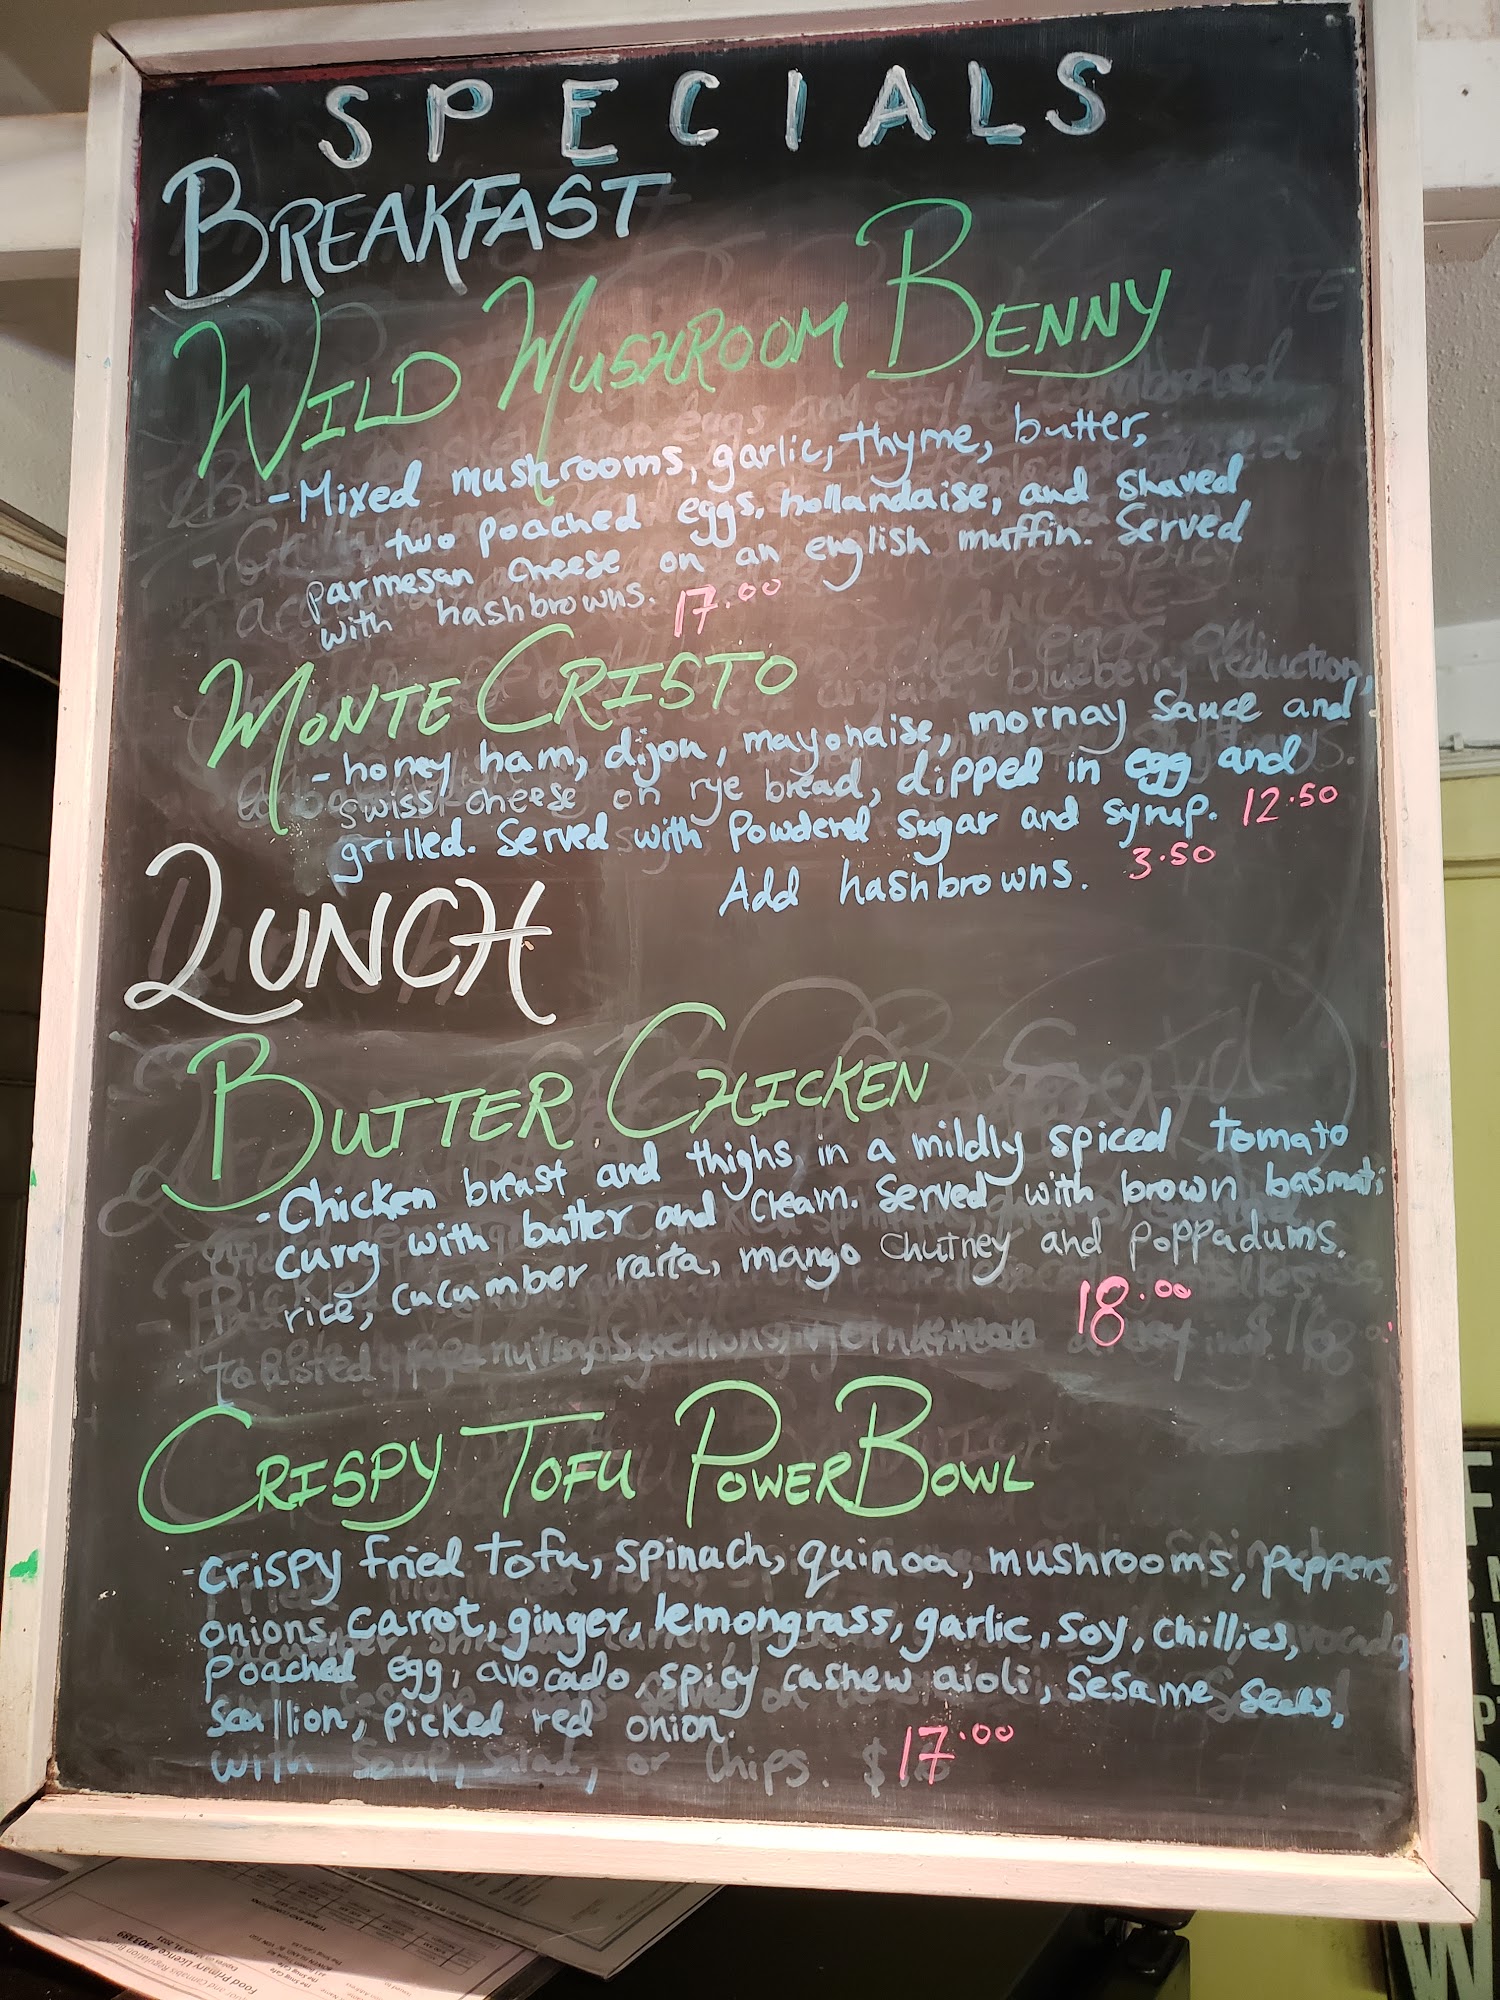 SPECIALS
BREAKFAST
WILD MUSHROOM BENNY
- Mixed mushrooms, garlic, thyme, butter,
two poached eggs, hollandaise, and shaved
parmesan cheese on an english muffin. Served
with hashbrowns. 17.00
MONTE CRISTO
- honey ham, dijon, mayonaise, mornay sauce and
swiss cheese on rye bread, dipped in egg and
grilled. Served with powdered sugar and syrup. 12.50
Add hashbrowns. 3.50
LUNCH
BUTTER CHICKEN
- Chicken breast and thighs in a mildly spiced tomato
curry with butter and cream. Served with brown basmati
rice, cucumber raita, mango chutney and poppadums.
18.00
CRISPY TOFU POWERBOWL
- Crispy fried tofu, spinach, quinoa, mushrooms, peppers,
onions, carrot, ginger, lemongrass, garlic, soy, chillies,
poached egg, avocado, spicy cashew aioli, sesame seeds,
scullion, picked red onion.
with soup, salad, or chips. 17.00
Food Primary Licence #303389